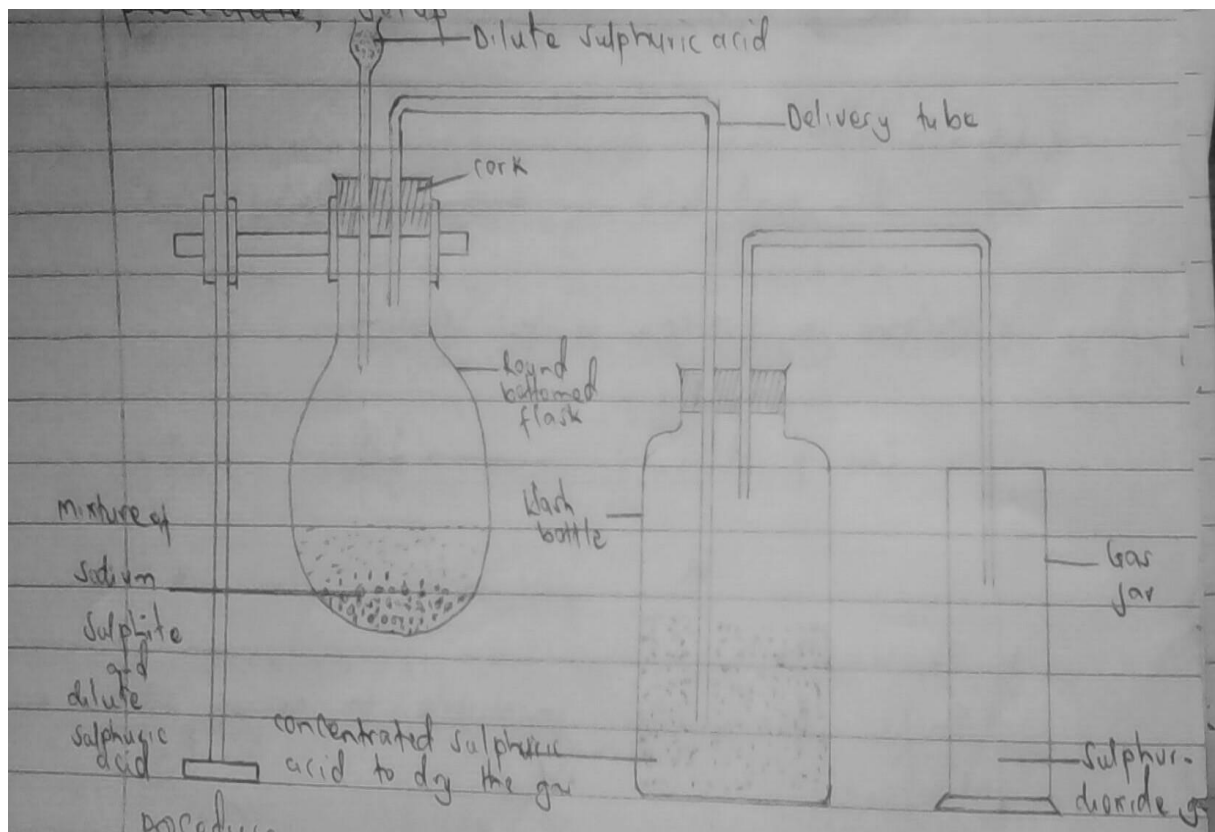 Dilute sulphuric acid
Delivery tube
cork
Round
bottomed
flask
Wash
bottle
mixture of
sodium
sulphite
and
dilute
sulphuric
acid
concentrated sulphuric
acid to dry the gas
Gas
Jar
Sulphur-
dioxide